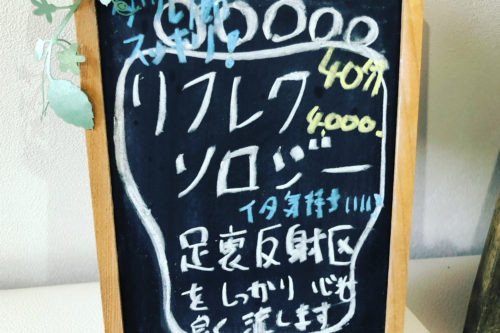 スッキリ!
リフレク
40分
4.000.
ソロジー
イタ気持ちいい
足裏反射区
をしっかり 心も
良く 流します